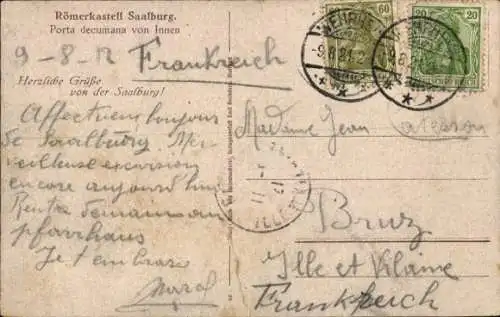 Römerkastell Saalburg.
Porta decumana von Innen
9-8-
Frankreich
Herzliche Grüße
von der Saalburg!
Affectueux bonjour
de Saalburg. Mer-
veilleuse excursion
encore aujourd'hui
Rentre demain au
pfarrhaus
Je t'embrasse
Marcel
60
20
Madame Jean
Bruz
Ille et Vilaine
Frankreich